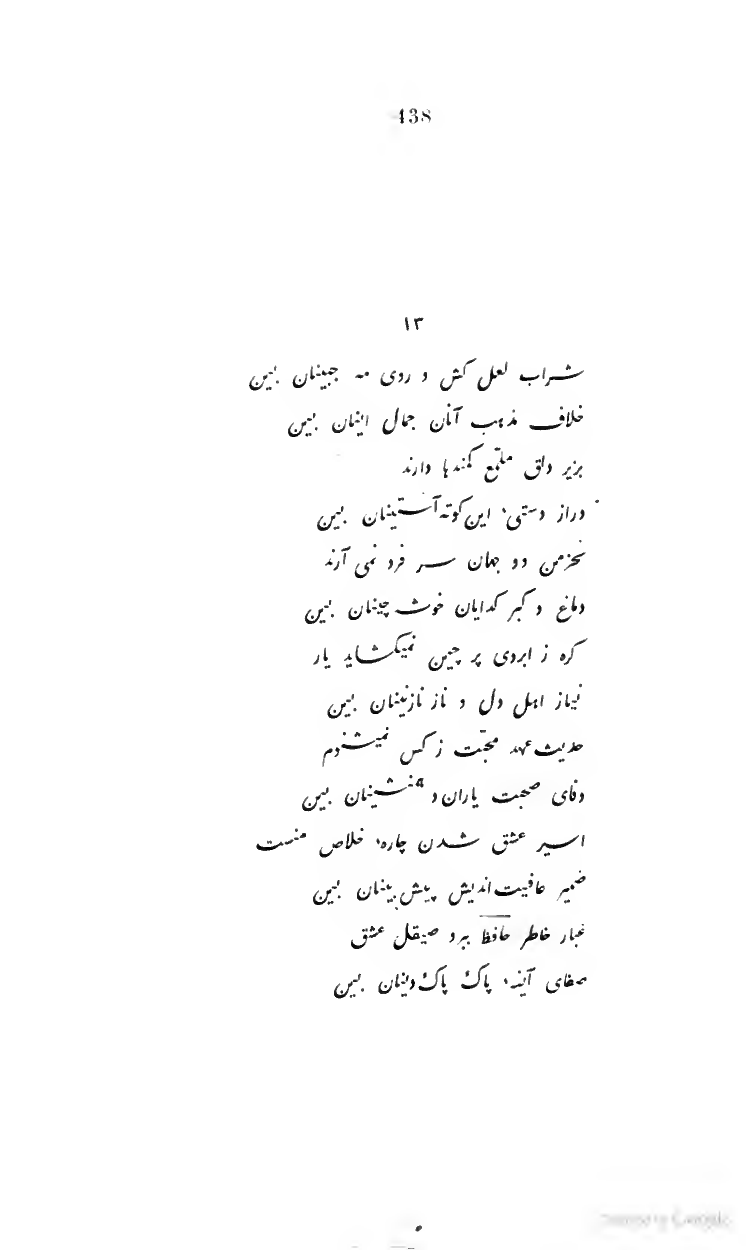 438
١٣
شراب لعل کش و روی مه جبینان بین
خلاف مذهب آنان جمال اینان بین
بزیر دلق ملمّع کمندها دارند
دراز دستیٔ این کوته آستینان بین
بخرمن دو جهان سر فرو نمی آرند
دماغ و کبر کدایان خوشه چینان بین
کره ز ابروی پر چین نمیکشاید یار
نیاز اهل دل و ناز نازنینان بین
حدیث عهد محبّت ز کس نمیشنوم
وفای صحبت یاران و همنشینان بین
اسیر عشق شدن چارهٔ خلاص منست
ضمیر عاقبت اندیش پیش بینان بین
غبار خاطر حافظ ببرد صیقل عشق
صفای آینهٔ پاک پاک دینان بین
Google